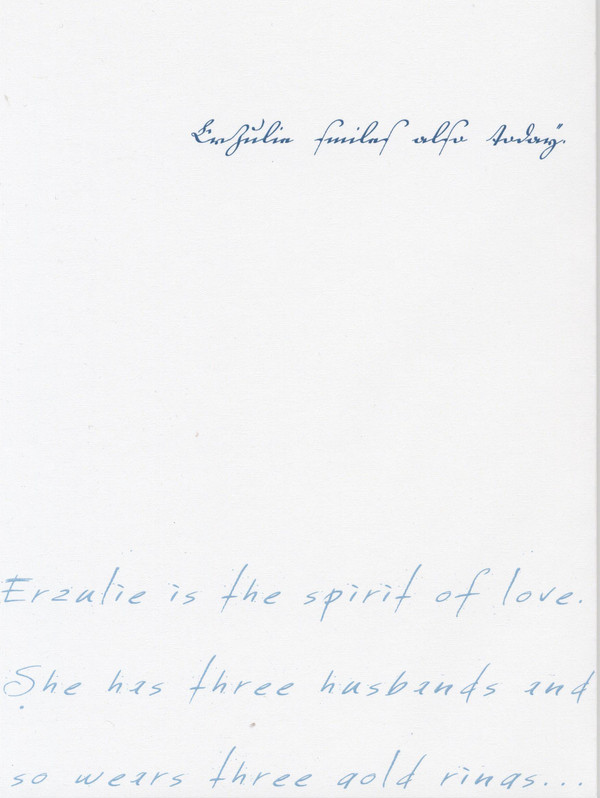 Erzulie smiles also today.
Erzulie is the spirit of love.
She has three husbands and
so wears three gold rings...